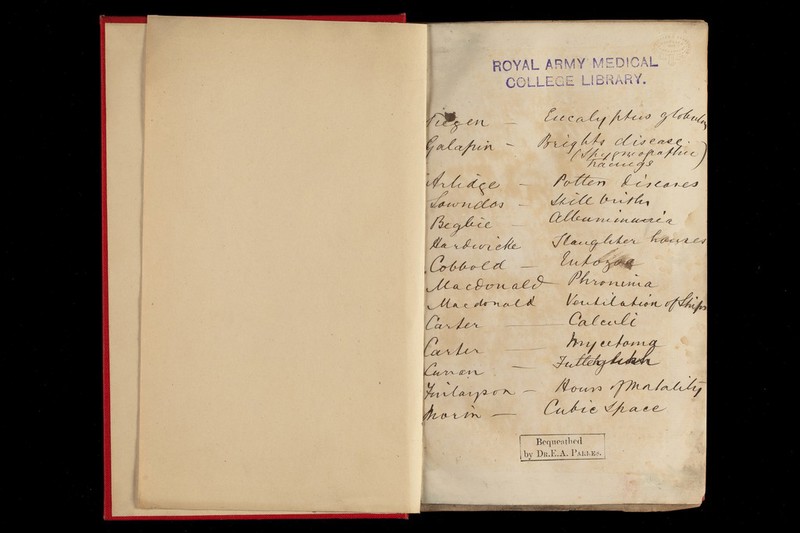 ROYAL ARMY MEDICAL
COLLEGE LIBRARY.
Eucalyptus globulus
Galapin - Brights disease.
(Sphygmographic
tracings)
Arlidge - Potters Diseases
Lowndes - Still births
Begbie - Albuminuria
Hardwicke Slaughter houses
Cobbold - Entozoa
MacDonald - Phronima
Macdonald Ventilation of Ships
Carter - Calculi
Carter - Mycetoma
Curran - Futtehghur
Finlayson - Hours of Mortality
Morin - Cubic Space
Bequeathed
by DR. E. A. PARKES.